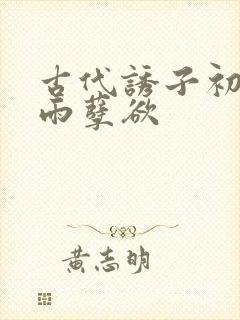 古代誘子初
雨孽欲
黄志明